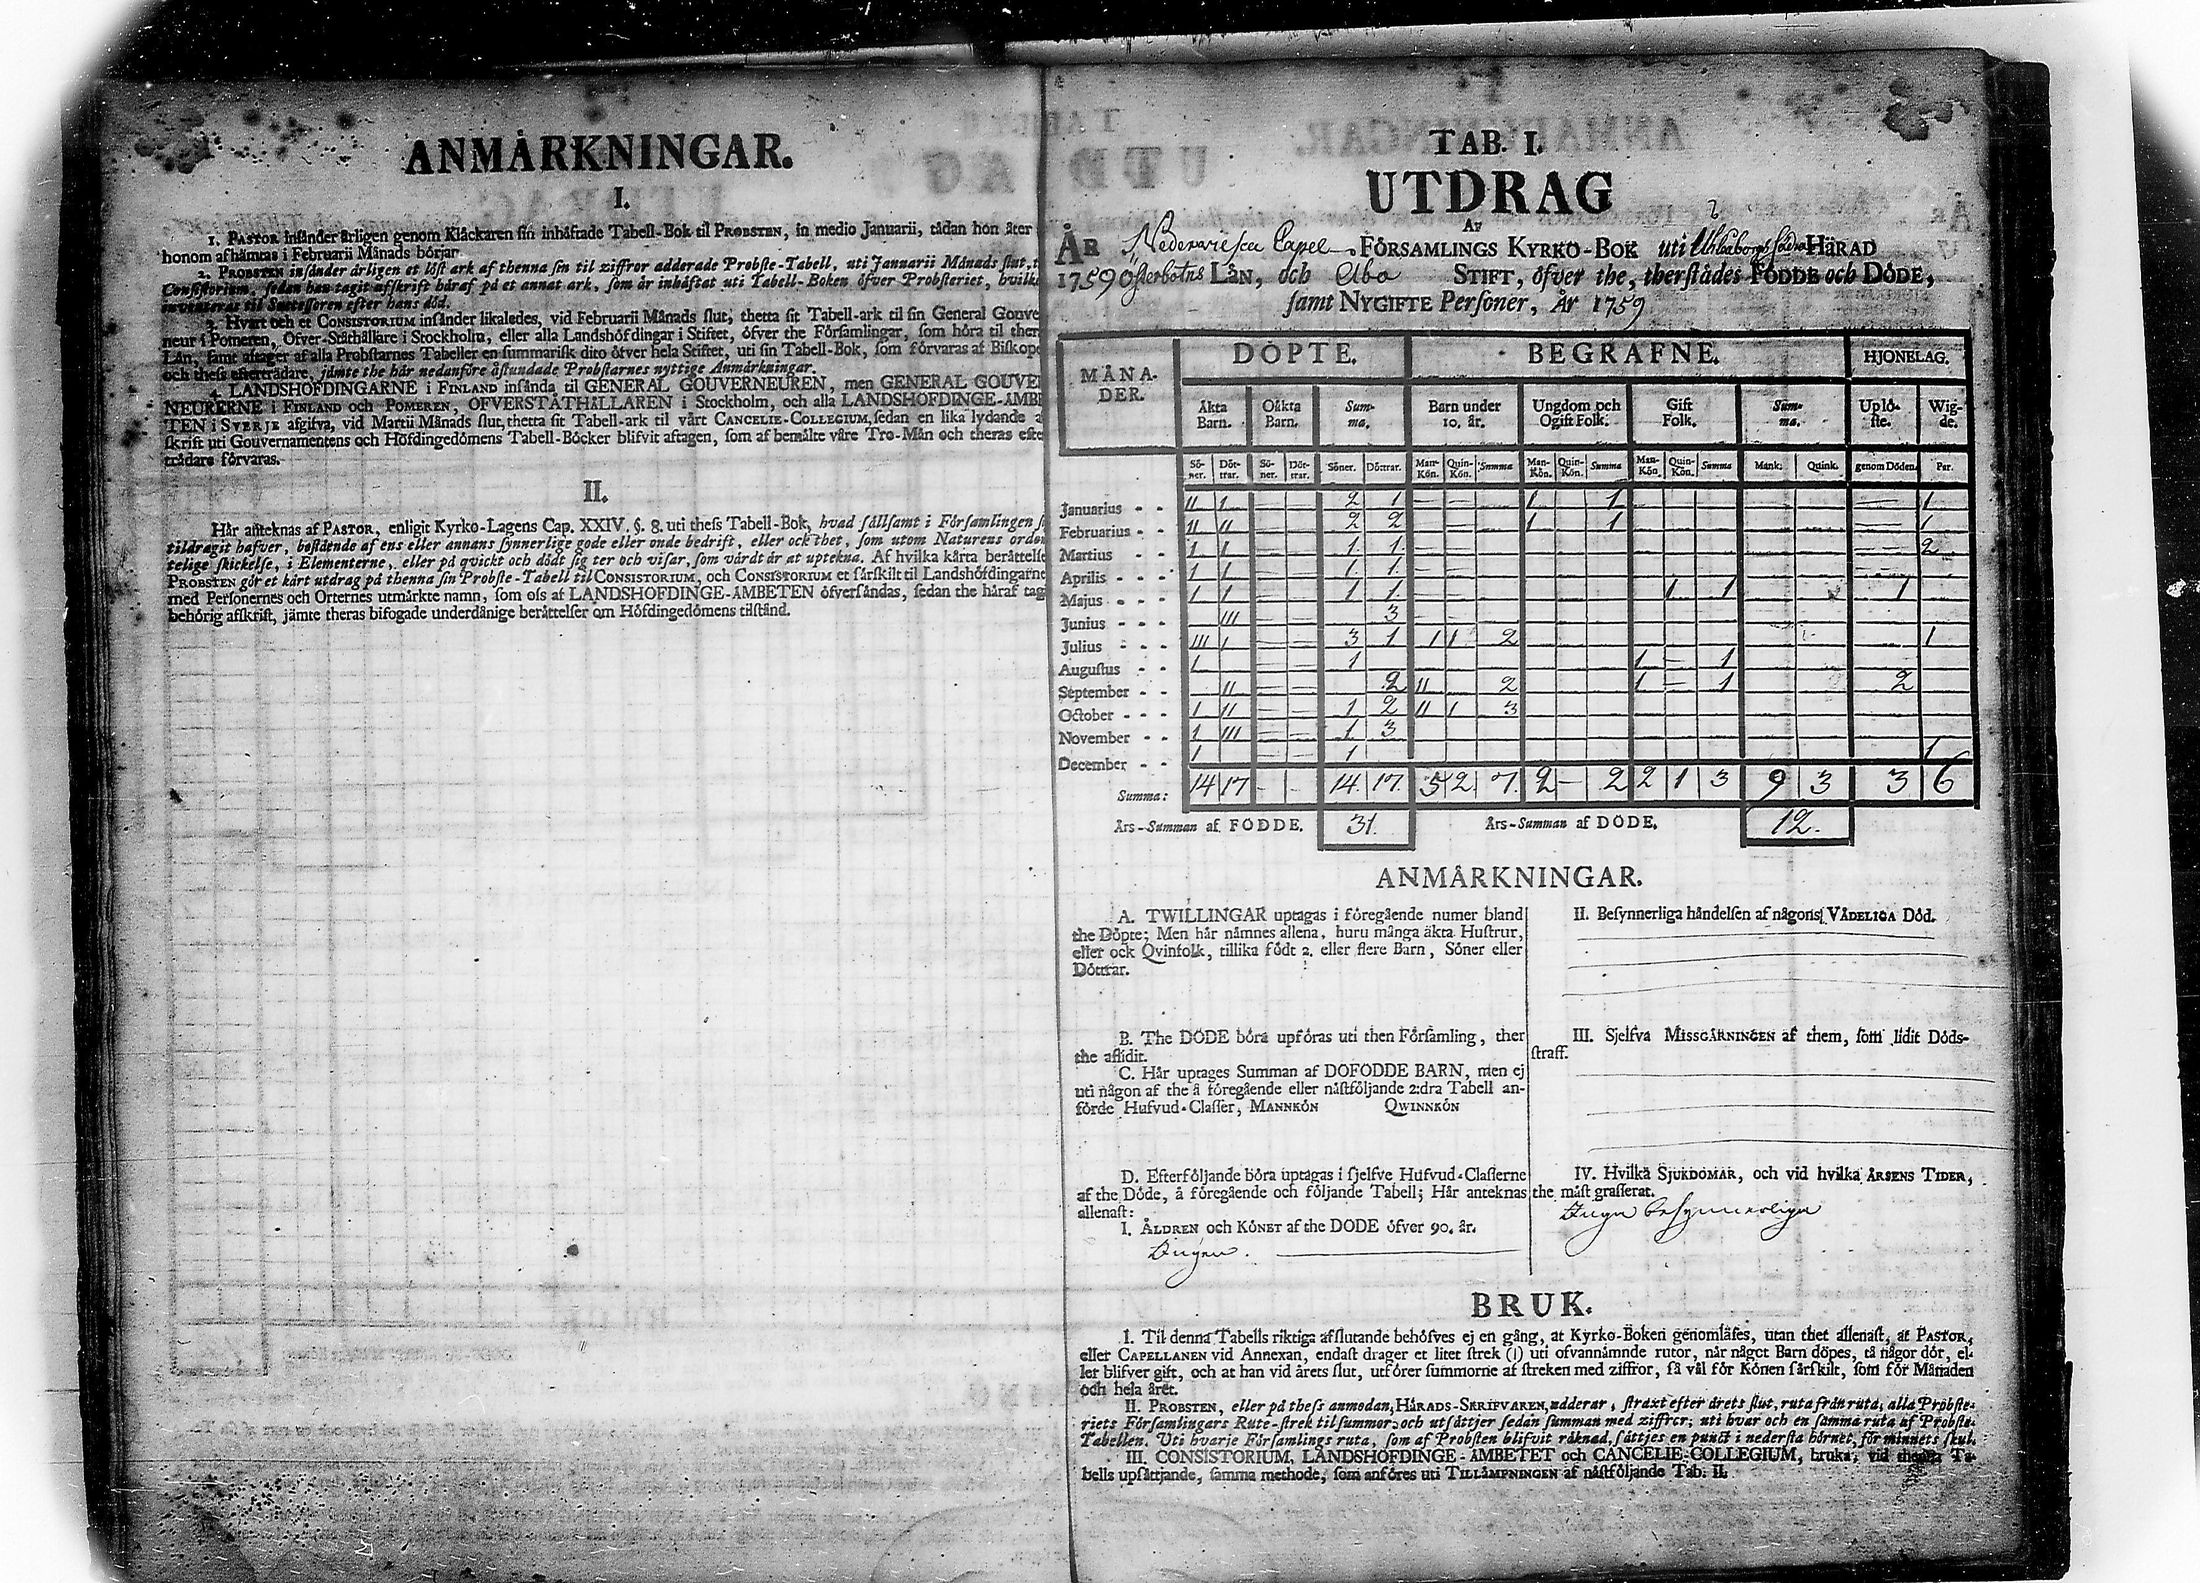 ANMÄRKNINGAR.
I.
1. PASTOR insänder årligen genom Klåckaren sin inhäftade Tabell-Bok til PROBSTEN, in medio Januarii, tådan hon åter
honom afhämtas i Februarii Månads början.
2. PROBSTEN insänder årligen et löst ark af thenna sin til ziffror adderade Probste-Tabell, uti Januarii Månads slut, t
Consistorium, sedan han tagit afskrift häraf på et annat ark, som är inhäftat uti Tabell-Boken öfver Probsteriet, hvilke
inventeras til Successoren efter hans död.
3. Hvart och et CONSISTORIUM insänder likaledes, vid Februarii Månads slut, thetta sit Tabell-ark til sin General Gouve
neur i Pomeren, Öfver-Ståthållare i Stockholm, eller alla Landshöfdingar i Stiftet, öfver the Församlingar, som höra til ther
Län, samt aftager af alla Probstarnes Tabeller en summarisk dito öfver hela Stiftet, uti sin Tabell-Bok, som förvaras af Biskope
och thess efterträdare, jämte the här nedanföre åstundade Probstarnes nyttige Anmärkningar.
4. LANDSHÖFDINGARNE i FINLAND insända til GENERAL GOUVERNEUREN, men GENERAL GOUVE
NEURERNE i FINLAND och POMEREN, ÖFVERSTÅTHÅLLAREN i Stockholm, och alla LANDSHÖFDINGE-ÄMBE
TEN i SVERJE afgifva, vid Martii Månads slut, thetta sit Tabell-ark til vårt CANCELIE-COLLEGIUM, sedan en lika lydande a
skrift uti Gouvernamentens och Höfdingedömens Tabell-Böcker blifvit aftagen, som af bemälte våre Tro-Män och theras efte
trädare förvaras.
II.
Här anteknas af PASTOR, enligit Kyrko-Lagens Cap. XXIV. §. 8. uti thess Tabell-Bok, hvad sällsamt i Församlingen s
tildragit hafver, bestående af ens eller annans synnerlige gode eller onde bedrift, eller ock thet, som utom Naturens orden
telige skickelse, i Elementerne, eller på qvickt och dödt sig ter och visar, som värdt är at uptekna. Af hvilka kårta berättelse
PROBSTEN gör et kårt utdrag på thenna sin Probste-Tabell til CONSISTORIUM, och CONSISTORIUM et särskilt til Landshöfdingarne
med Personernes och Orternes utmärkte namn, som oss af LANDSHÖFDINGE-ÄMBETEN öfversändas, sedan the häraf tag
behörig afskrift, jämte theras bifogade underdånige berättelser om Höfdingedömens tilstånd.
TAB. I.
UTDRAG
AF
ÅR Nederviesca Capel FÖRSAMLINGS KYRKO-BOK uti Uhleåborgs södra HÄRAD
1759 Österbotns LÄN, och Åbo STIFT, öfver the, therstädes FÖDDE och DÖDE,
samt NYGIFTE Personer, År 1759
MÅNADER. DÖPTE. BEGRAFNE. HJONELAG.
Äkta Barn. Oäkta Barn. Summa. Barn under 10. år. Ungdom och Ogift Folk. Gift Folk. Summa. Uplöste. Wigde.
Söner. Döttrar. Söner. Döttrar. Söner. Döttrar. Man-Kön. Quin-Kön. Summa Man-Kön. Quin-Kön. Summa Man-Kön. Quin-Kön. Summa Mank. Quink. genom Döden. Par.
Januarius - - II I — — 2 1 — — 1 1 1
Februarius - II II — — 2 2 — — 1 1 1
Martius - - I I — — 1 1 2
Aprilis - - - I I — — 1 1
Majus - - - I I — — 1 1 1 1 1
Junius - - - III — — 3
Julius - - - III I — — 3 1 1 1 2 1
Augustus - - I — — 1 1 — 1
September - - II — — 2 II 2 1 — 1 2
October - - - I II — — 1 2 II 1 3
November - - I III — — 1 3
December - - I 1 1
Summa: 14 17 - - 14. 17. 5 2 7. 2 — 2 2 1 3 9 3 3 6
Års-Summan af FÖDDE. 31. Års-Summan af DÖDE. 12.
ANMÄRKNINGAR.
A. TWILLINGAR uptagas i föregående numer bland
the Döpte; Men här nämnes allena, huru många äkta Hustrur,
eller ock Qvinfolk, tillika födt 2. eller flere Barn, Söner eller
Döttrar.
B. The DÖDE böra upföras uti then Församling, ther
the aflidit.
C. Här uptages Summan af DÖFÖDDE BARN, men ej
uti någon af the å föregående eller nästföljande 2:dra Tabell an-
förde Hufvud-Classer, MANNKÖN QWINNKÖN
D. Efterföljande böra uptagas i sjelfve Hufvud-Classerne
af the Döde, å föregående och följande Tabell; Här anteknas
allenast:
I. ÅLDREN och KÖNET af the DÖDE öfver 90. år.
Ingen.
II. Besynnerliga händelsen af någons VÅDELIGA Död.
III. Sjelfva MISSGÄRNINGEN af them, som lidit Döds-
straff.
IV. Hvilka SJUKDOMAR, och vid hvilka ÅRSENS TIDER,
the mäst grasserat.
Inga besynnerliga
BRUK.
I. Til denna Tabells riktiga afslutande behöfves ej en gång, at Kyrko-Boken genomläses, utan thet allenast, at PASTOR,
eller CAPELLANEN vid Annexan, endast drager et litet strek (I) uti ofvannämnde rutor, när något Barn döpes, tå någor dör, el-
ler blifver gift, och at han vid årets slut, utförer summorne af streken med ziffror, så väl för Könen särskilt, som för Månaden
och hela året.
II. PROBSTEN, eller på thess anmodan, HÄRADS-SKRIFVAREN, adderar, straxt efter årets slut, ruta från ruta, alla Probste-
riets Församlingars Rute-strek til summor, och utsättjer sedan summan med ziffror, uti hvar och en samma ruta af Probste-
Tabellen. Uti hvarje Församlings ruta, som af Probsten blifvit räknad, sättjes en punct i nedersta hörnet, för minnets skul.
III. CONSISTORIUM, LANDSHÖFDINGE-ÄMBETET och CANCELIE-COLLEGIUM, bruka, vid thenna Ta-
bells upsättjande, samma methode, som anföres uti TILLÄMPNINGEN af nästföljande Tab. II.